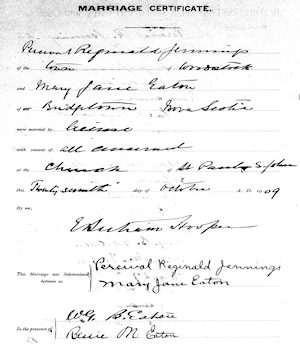 MARRIAGE CERTIFICATE.
Percival Reginald Jennings
of the town of Woodstock
and Mary Jane Eaton
of Bridgetown Nova Scotia
were married by license
with consent of all concerned
at the Church of St Paul's St John
this Twenty seventh day of October A. D. 1909
By me,
E Bertram Hooper
This Marriage was Solemnized between us
Percival Reginald Jennings
Mary Jane Eaton
In the presence of
W. G. B. Eaton
Bessie M Eaton